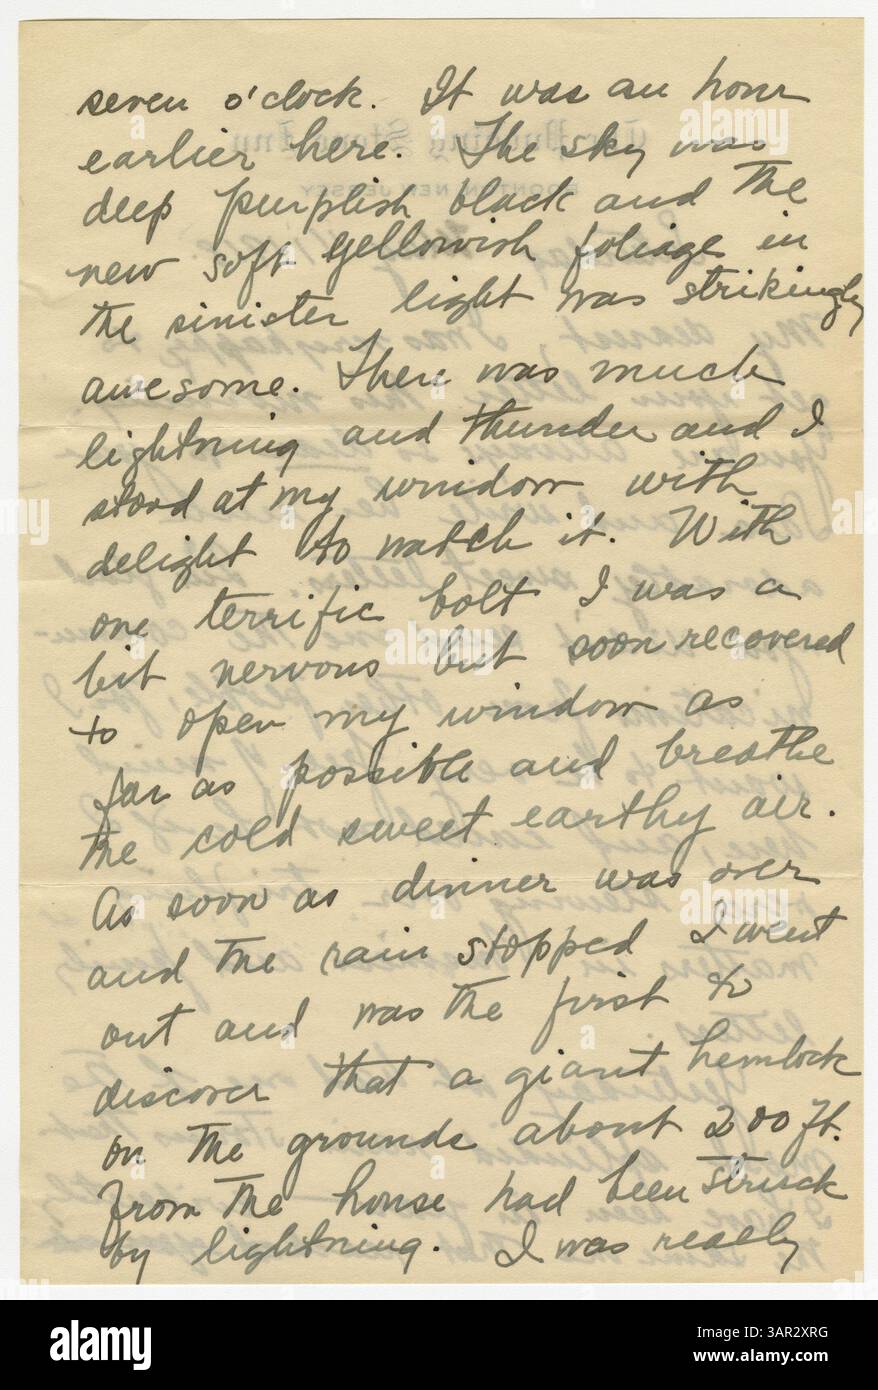 seven o'clock. It was an hour
earlier here. The sky was
deep purplish black and the
new soft yellowish foliage in
the sinister light was strikingly
awesome. There was much
lightning and thunder and I
stood at my window with
delight to watch it. With
one terrific bolt I was a
bit nervous but soon recovered
to open my window as
far as possible and breathe
the cold sweet earthy air.
As soon as dinner was over
and the rain stopped I went
out and was the first to
discover that a giant hemlock
on the grounds about 200 ft.
from the house had been struck
by lightning. I was really
alamy
Image ID: 3AR2XRG
www.alamy.com